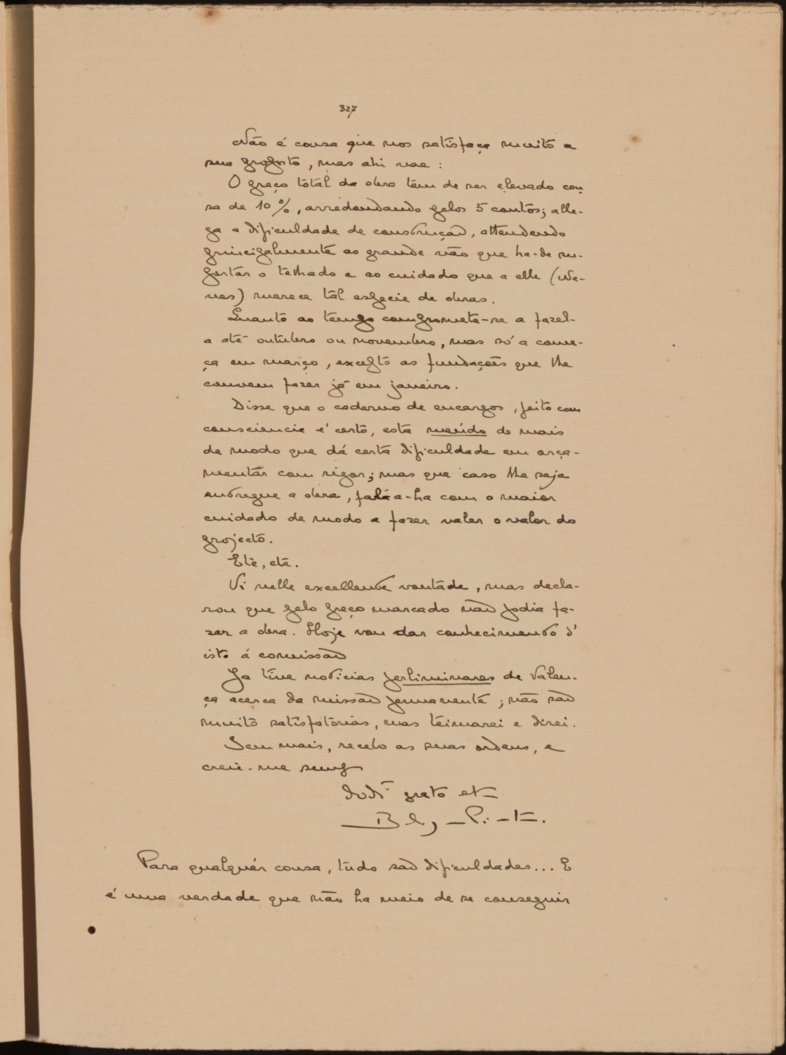 327
Não é cousa que nos satisfaça muito a
sua proposta, mas ahi vae:
O preço total da obra tem de ser elevado cou
sa de 10%, arredondando pelos 5 contos; alle-
ga a dificuldade de construção, attendendo
principalmente ao grande vão que ha-de su-
portar o telhado e ao cuidado que a elle (Ne-
ves) merece tal especie de obras.
Quanto ao tempo compromete-se a fazel-
a até outubro ou novembro, mas só a come-
ça em março, excepto as fundações que lhe
convem fazer já em janeiro.
Disse que o caderno de encargos, feito com
consciencia é certo, está meúdo de mais
de modo que dá certa dificuldade em orça-
mentar com rigor; mas que caso lhe seja
entregue a obra, fal-a-ha com o maior
cuidado de modo a fazer valer o valor do
projecto.
Etc, etc.
Vi nelle excellente vontade, mas decla-
rou que pelo preço marcado não podia fa-
zer a obra. Hoje vou dar conhecimento d'
isto á comissão
Ja tive noticias perliminares de Valen-
ça acerca da missão permanente; não são
muito satisfatorias, mas teimarei e direi.
Sem mais, recebo as suas ordens, e
creia-me sempre
grato etc
Para qualquér cousa, tudo são dificuldades... E
é uma verdade que não ha meio de se conseguir